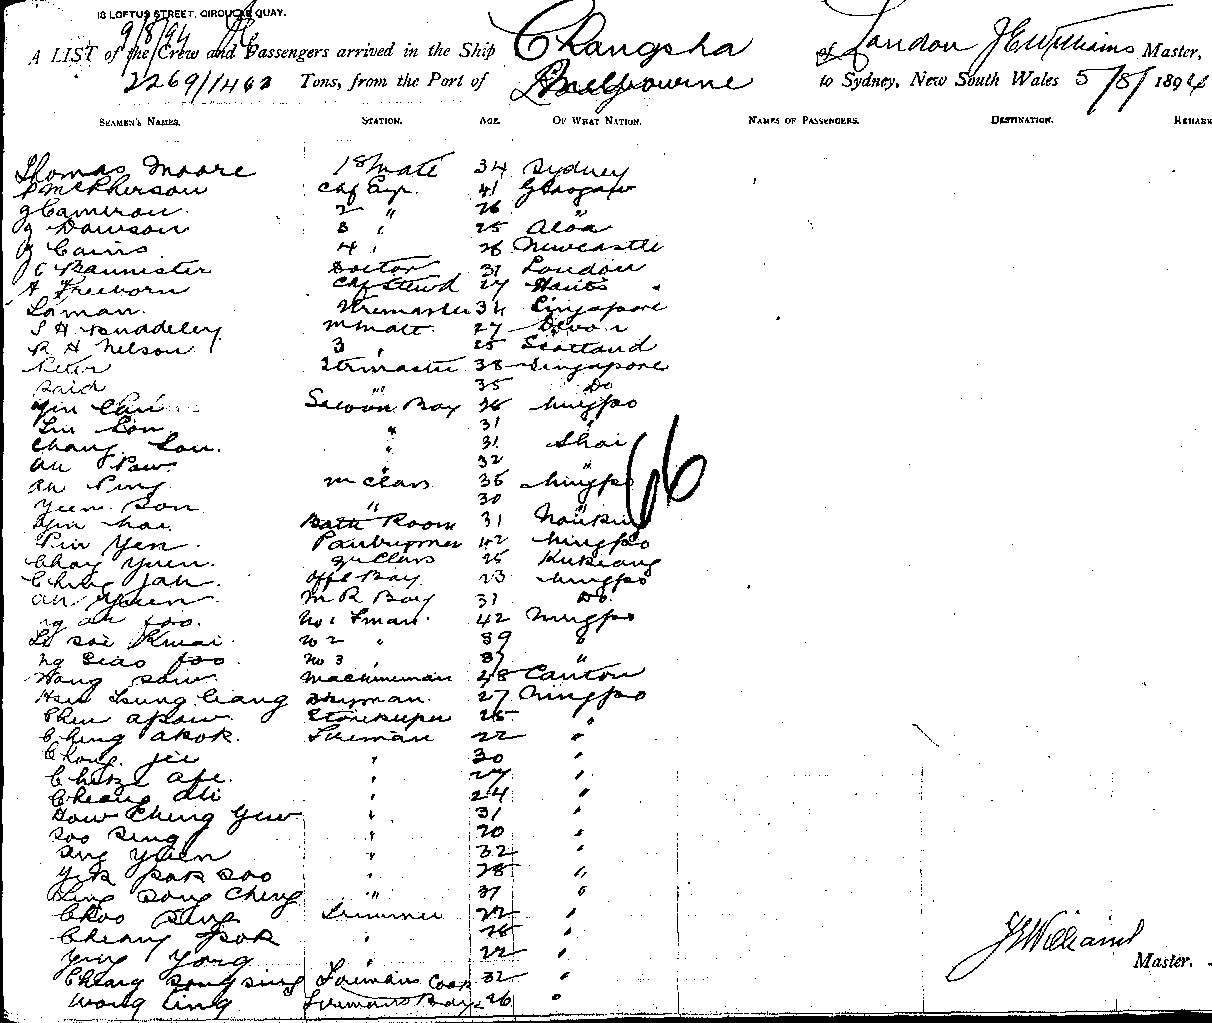 18 LOFTUS STREET, CIRCULAR QUAY.
9/8/94
A LIST of the Crew and Passengers arrived in the Ship Changsha of London J E Williams Master,
2269/1463 Tons, from the Port of Melbourne to Sydney, New South Wales 5/8/1894
SEAMEN'S NAMES. STATION. AGE. OF WHAT NATION. NAMES OF PASSENGERS. DESTINATION. REMARK
Thomas Moore 1st Mate 34 Sydney
McPherson Chf Engr 41 Glasgow
J Cameron 2 " 26 "
J Dawson 3 " 25 Aloa
J Cairns 4 " 26 Newcastle
J C Bannister Doctor 31 London
A Freeborn Chf Stewd 27 Hants
Laman 34 Singapore
S H 27 Devon
R H Nelson 3 " 25 Scotland
Peter 38 Singapore
Said " 35 Do
Yin Chui Saloon Boy 26 Ningpo
Lin Lon " 31 "
Chang Lou. " 31 Shai
Au Paw " 32 "
Ah Ping m Class 36 Ningpo
Yuen Son " 30
66
Yin hai Bath Room 31
Pin Yen Pantryman 42 Ningpo
Chay Yuen 2nd Class 25 Kukiang
Ching Jah Offs Boy 23 Ningpo
Ah Yuen M R Boy 31 Do.
Ng Ah foo. No 1 Fman. 42 Ningpo
Li Soi Kwai No 2 " 39 "
Ng Siao foo No 3 " 37 "
Wong Saw Machineman 48 Canton
Hsu Tsung Liang 27 Ningpo
Chew Apaw Storekeeper 25 "
Ching Akok Fireman 22 "
Chong Jee " 30 "
Ape. " 27 "
Cheang Ali " 24 "
How Cheng Yuw " 31 "
Soo Sing " 20 "
Sing Yuen " 32 "
Yek Pak Soo " 28 "
Ling Song Cheng " 37 "
Choo Sing Trimmer 22 "
Cheang Pok " 26 "
Ying Yong " 22 "
Cheang Song Sing Firemans Cook 32 "
Wong Ling Firemans Boy 26 "
J E Williams
Master.